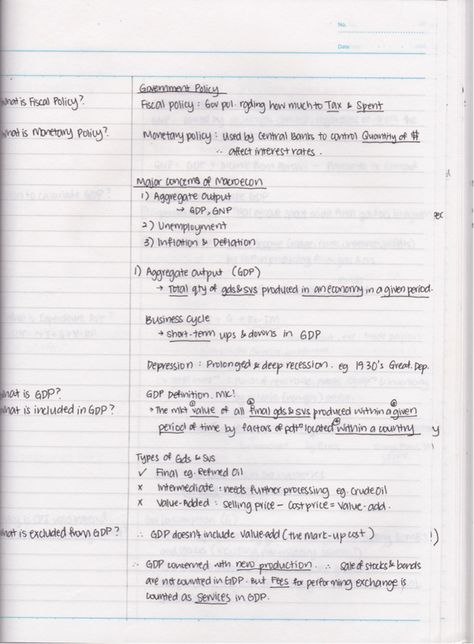 No.
Date
Government Policy
What is Fiscal Policy? Fiscal policy : Gov pol. rgding how much to Tax & Spent
What is Monetary Policy? Monetary policy : used by Central Banks to control Quantity of $
∴ affect interest rates.
Major concerns of Macroecon
1) Aggregate Output
→ GDP, GNP
2) Unemployment
3) Inflation & Deflation
1) Aggregate Output (GDP)
→ Total qty of gds & svs produced in an economy in a given period.
Business Cycle
→ short-term ups & downs in GDP
Depression : Prolonged & deep recession. eg 1930's Great. Dep.
What is GDP? GDP Definition. MC!
What is included in GDP? → The mkt value of all final gds & svs produced within a given
period of time by factors of pdtn located within a country y
Types of Gds & svs
✓ Final eg. Refined Oil
x Intermediate : needs further processing eg. Crude Oil
x Value-Added : selling price - cost price = value-add.
What is excluded from GDP? ∴ GDP doesn't include value add (the mark-up cost) !)
∴ GDP concerned with new production. ∴ Sale of stocks & bonds
are not counted in GDP. But Fees for performing exchange is
counted as services in GDP.